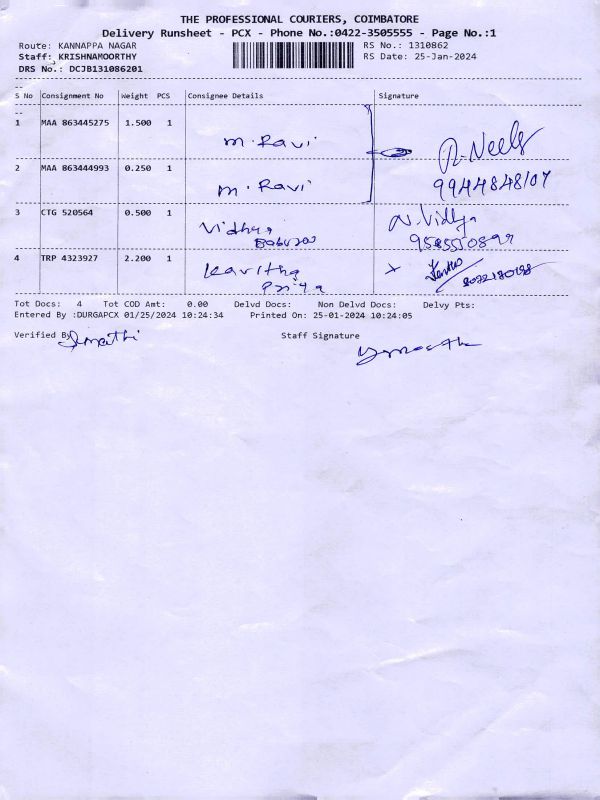 THE PROFESSIONAL COURIERS, COIMBATORE
Delivery Runsheet - PCX - Phone No.:0422-3505555 - Page No.:1
Route: KANNAPPA NAGAR RS No.: 1310862
Staff: KRISHNAMOORTHY RS Date: 25-Jan-2024
DRS No.: DCJB131086201
S No Consignment No Weight PCS Consignee Details Signature
1 MAA 863445275 1.500 1
M. Ravi
2 MAA 863444993 0.250 1
M. Ravi 9944848107
3 CTG 520564 0.500 1 Vidhya N. Vidya
4 TRP 4323927 2.200 1 Kavitha
Priya
Tot Docs: 4 Tot COD Amt: 0.00 Delvd Docs: Non Delvd Docs: Delvy Pts:
Entered By :DURGAPCX 01/25/2024 10:24:34 Printed On: 25-01-2024 10:24:05
Verified By Staff Signature